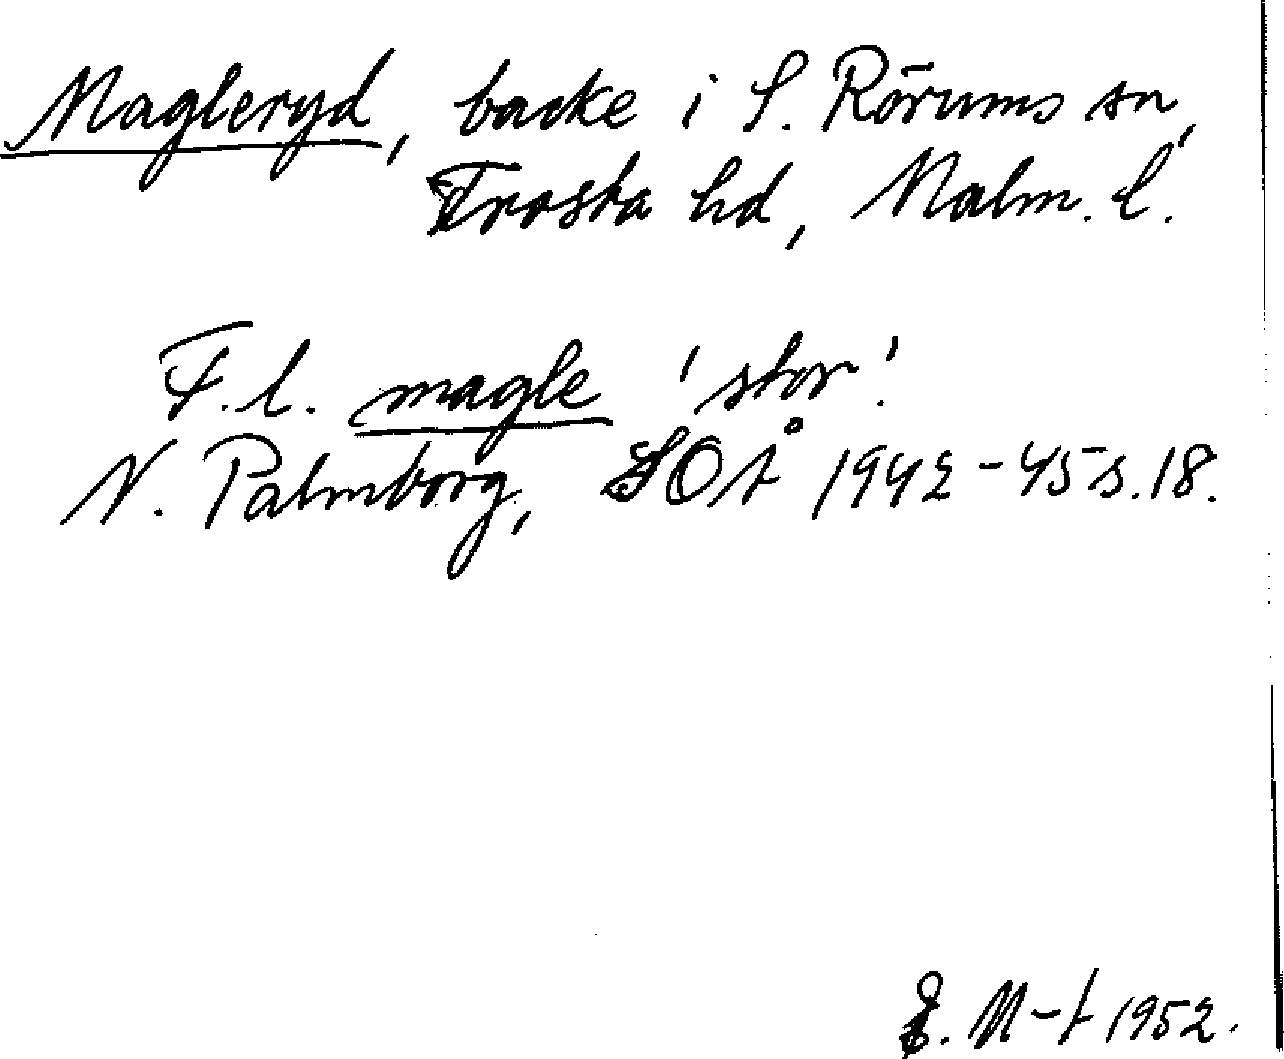 Magleryd, backe i S. Rörums sn,
Frosta hd, Malm. l.
F. l. magle 'stor'.
N. Palmborg, SOÅ 1942-45 s. 18.
M-t 1952.